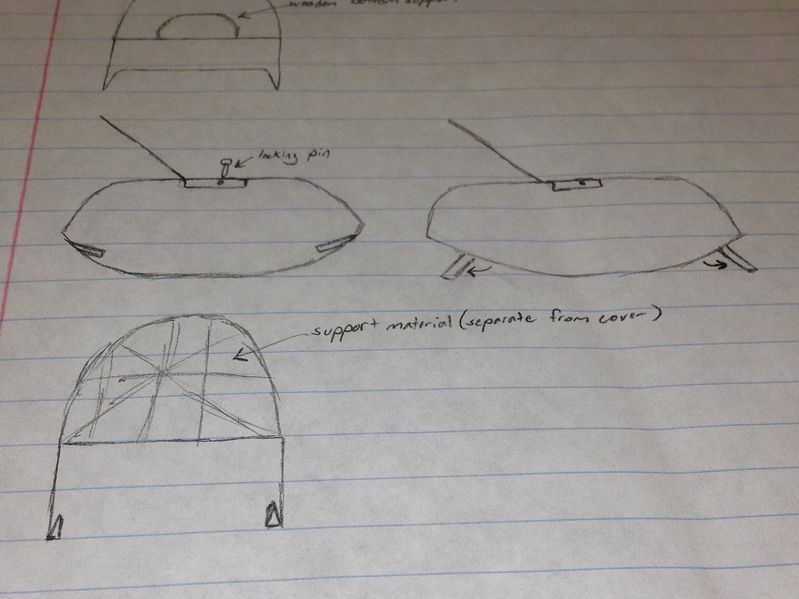 wooden bottom support
locking pin
support material (separate from cover)